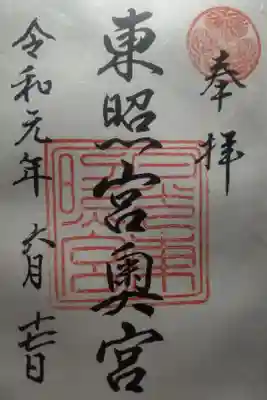 奉拝
東照宮奥宮
令和元年六月十七日